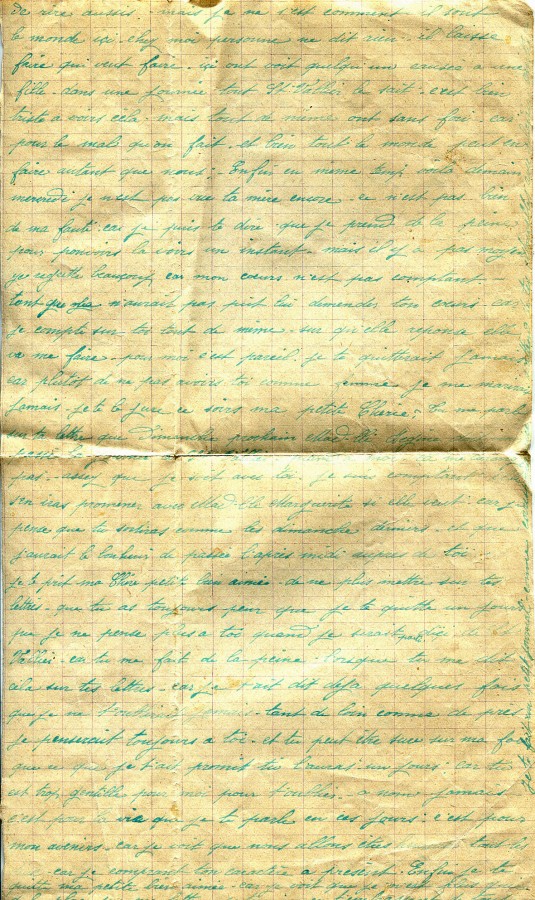 de rire aussi. mais je ne s'est comment il sont
le monde içi. chez moi personne ne dit rien. il laisse
faire qui veut faire. içi ont voit quelqu'un causer a une
fille. dans une journée tout St Vallier le sait. c'est bien
triste a voirs cela. mais tout de même ont sans fou. car
pour le mals qu'on fait. et bien tout le monde peut en
faire autant que nous. Enfin en même temp voila demain
mercredi je n'est pas vue ta mère encore. ce n'est pas bien
de ma faute car je puis te dire que je prend de la peine
pour pouvoirs la voirs un instant. mais il y a pas moyen
je regrette beaucoup car mon cœurs n'est pas comptant
tant que je n'aurait pas put lui demender ton cœurs. car
je compte sur toi tout de même. sur qu'elle reponse elle
va me faire. pour moi c'est pareil. je te quitterait jamais
car plutot de ne pas avoirs toi comme femme je me marirai
jamais. je te le jure ce soirs ma petite Cherie; Tu me parle
sur ta lettre que Dimanche prochain Mad
pas. assez que je soit avec toi. je suis comptant
s'en iras promener avec Mad Marguerite si elle veut. car je
pence que tu sortiras comme les dimanche derniers. et que
j'aurait le bonheur de passer l'après midi aupres de toi.
je te prit ma Chère petite bien aimée. de ne plus mettre sur tes
lettres. que tu as toujours peur que je te quitte un jour
que je ne pense plus a toi quand je serait parti de St
Vallier. car tu me fait de la peine lorsque tu me dit
cela sur tes lettres. car je t'ait dit deja quelques fois
que je ne t'oublirait jamais. tant de loin comme de près
je penserait toujours a toi. et tu peut être sure sur ma foi
que ce que je t'ait promit tu l'auras un jours. car tu
est trop gentille pour moi pour t'oublier. a nom jamais
c'est pour la vie que je te parle en ces jours: c'est pour
mon avenirs. car je voit que nous allons êtres tout les
car je comprant ton caractère a présent. Enfin je te
quitte ma petite bien aimée. car je voit que